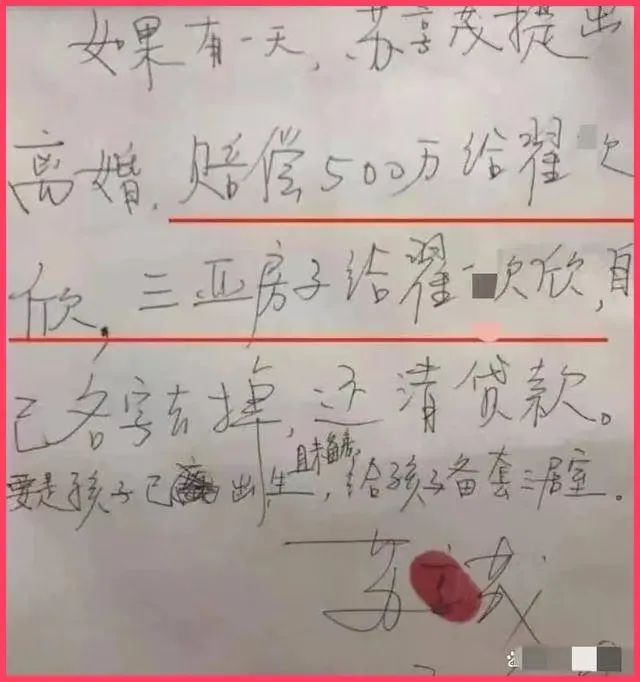 如果有一天,苏享茂提出
离婚,赔偿500万给翟欠
欣,三亚房子给翟欠欣,自
己名字去掉,还清贷款。
要是孩子已出生,且未备房,给孩子备套三居室。
苏享茂